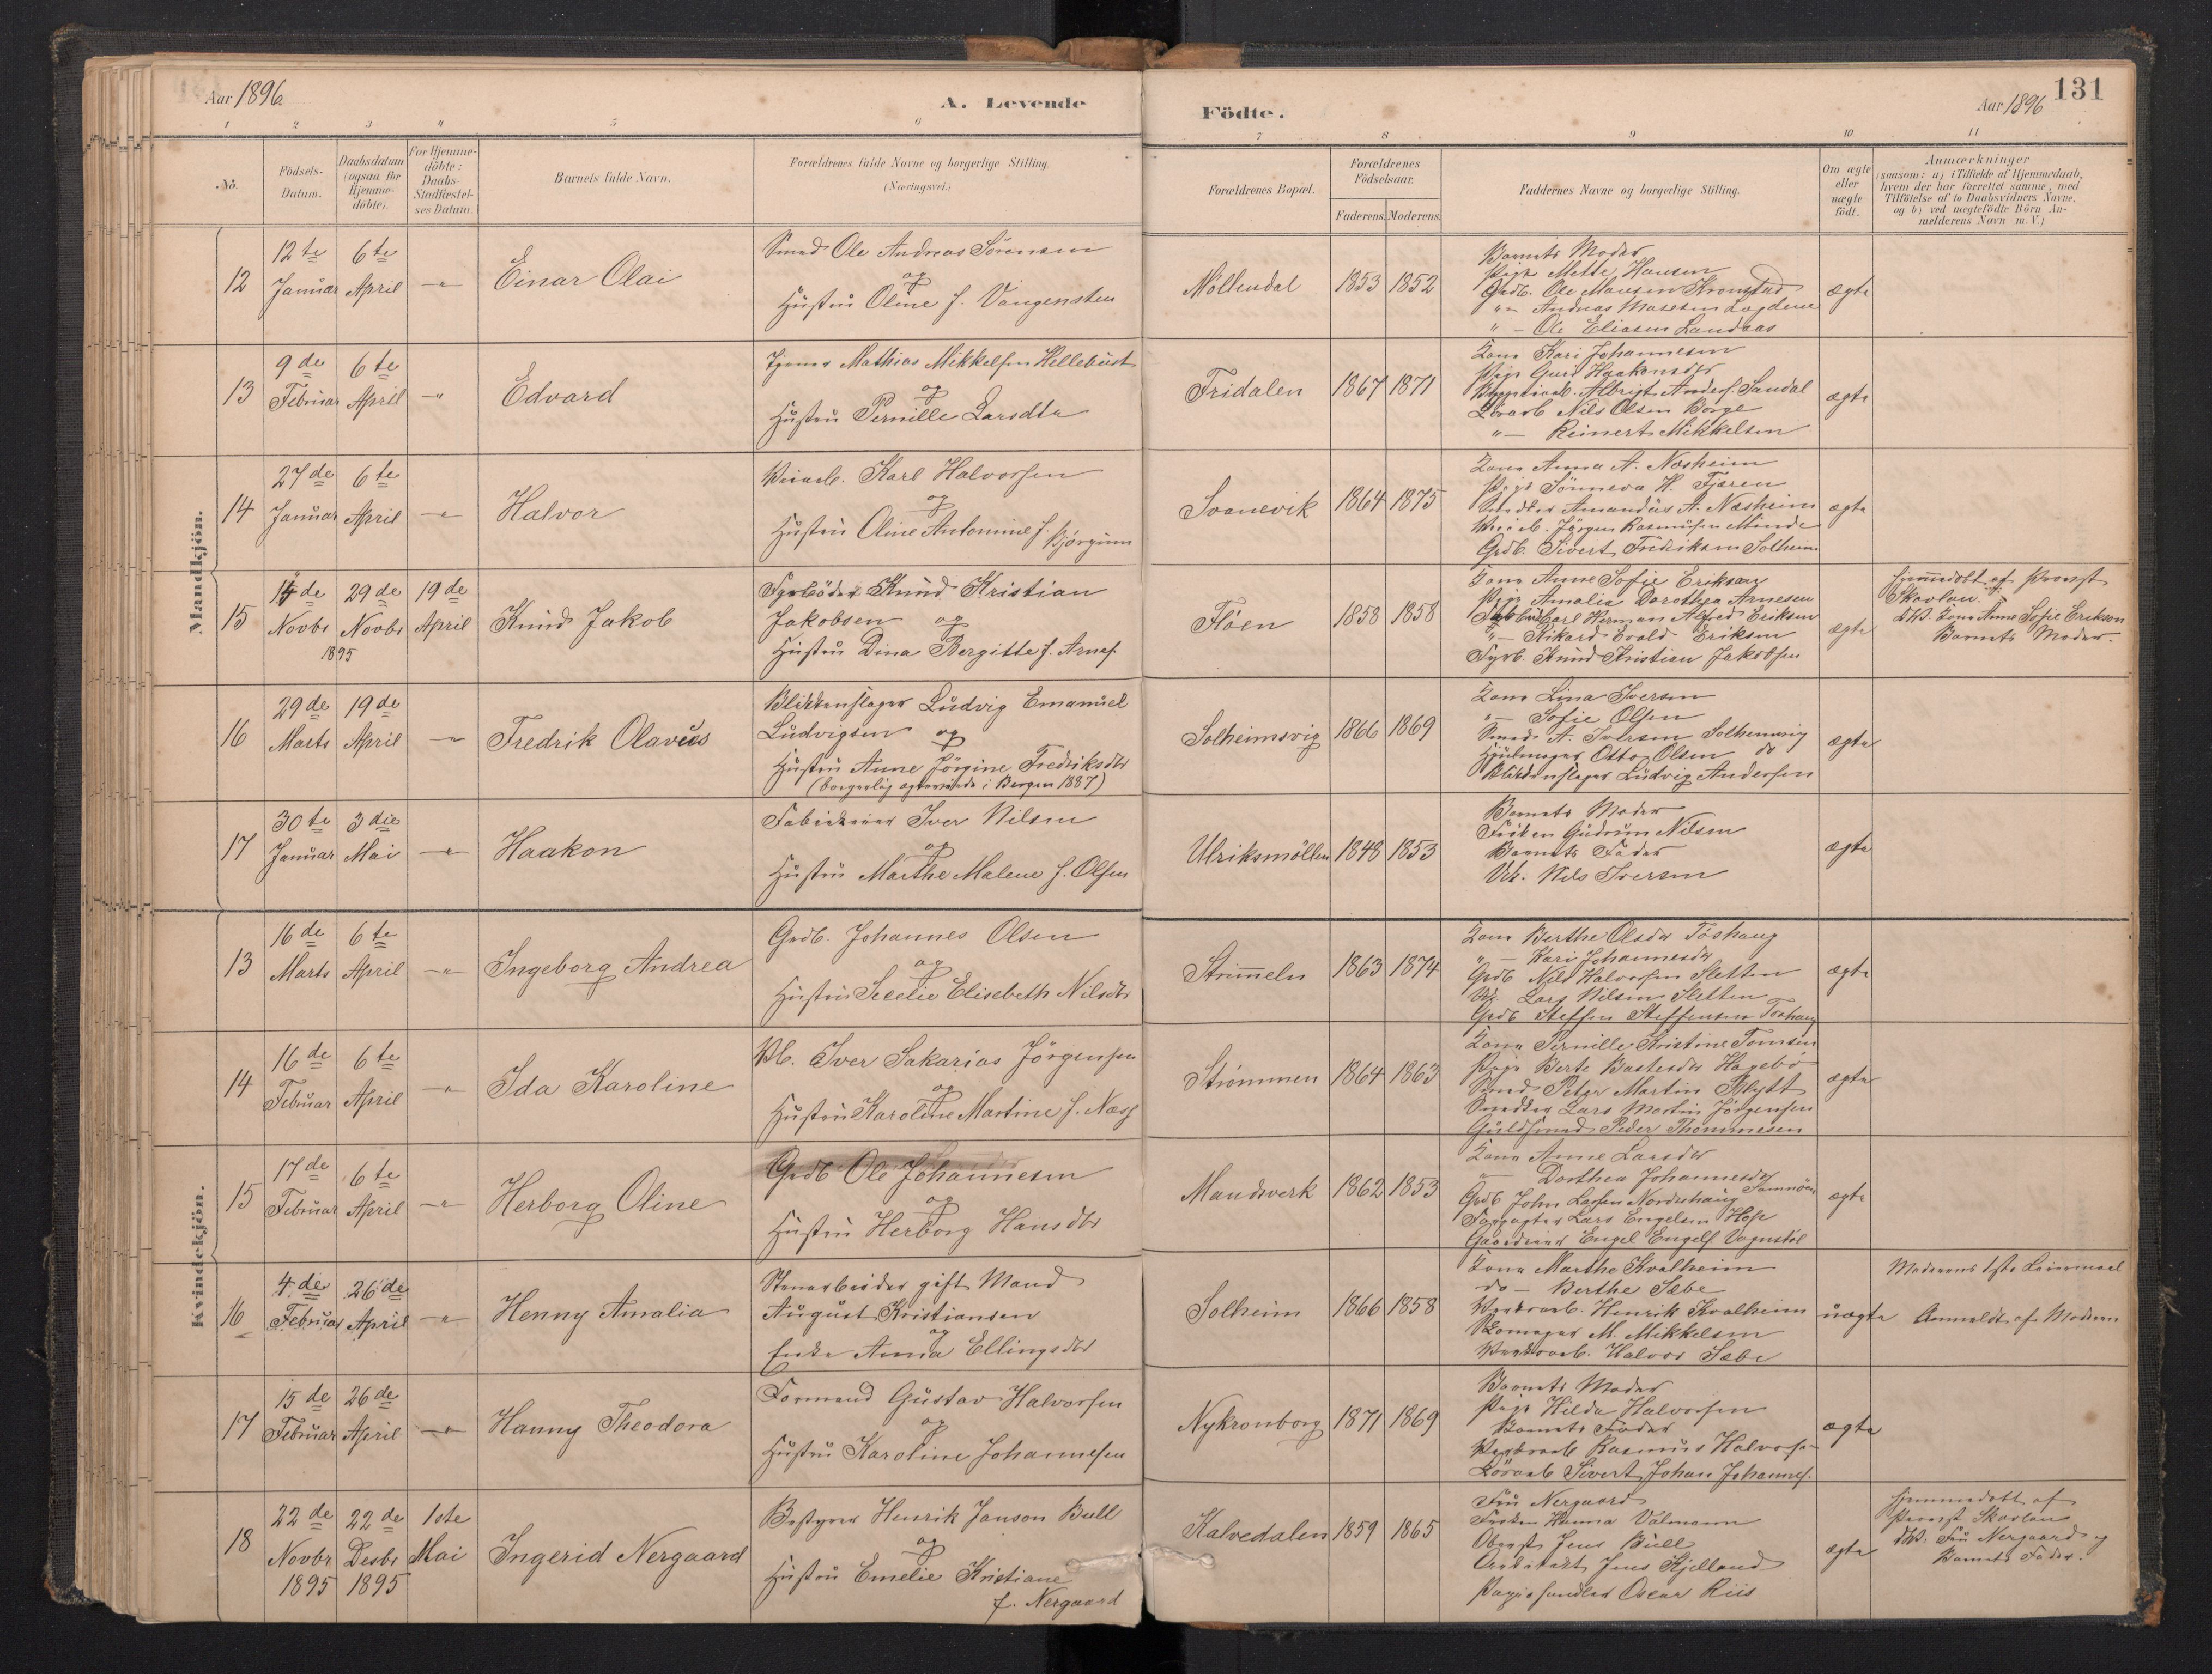 Aar 1896.
A. Levende
Födte.
Aar 1896
131
1 2 3 4 5 6 7 8 9 10 11
No.
Födsels-
Datum.
Daabsdatum
(ogsaa for
Hjemme-
döbte).
For Hjemme-
döbte:
Daabs-
Stadfæstel-
ses Datum.
Barnets fulde Navn.
Forældrenes fulde Navne og borgerlige Stilling.
(Næringsvei.)
Forældrenes Bopæl.
Forældrenes
Födselsaar.
Faderens. Moderens.
Faddernes Navne og borgerlige Stilling.
Om ægte
eller
uægte
födt.
Anmærkninger
(saasom: a) i Tilfælde af Hjemmedaab,
hvem der har forrettet samme, med
Tilföielse af to Daabsvidners Navne,
og b) ved uægtefödte Börn An-
melderens Navn m.V.)
Mandkjön.
12
12te Januar
6te April
Einar Olai
Smed Ole Andreas Sörensen
og
Hustru Oline f. Vangensten
Möllendal
1853 1852
Barnets Moder
Pige Mette Hansen
Grdb. Ole Monsen Kronstad
"- Andreas Mosesen Lægdene
"- Ole Eliasen Landaas
ægte
13
9de Februar
6te April
Edvard
Mathias Mikkelsen Hellebust
og
Hustru Pernille Larsdtr
Fridalen
1867 1871
Kone Kari Johannesen
Pige Guri Haakonsdtr
Albrigt Anders. Sandal
Nils Olsen Borge
"- Reinert Mikkelsen
ægte
14
27de Januar
6te April
Halvor
Karl Halvorsen
og
Hustru Oline Antomine f. Bjørguen
Svanevik
1864 1875
Kone Anna A. Nesheim
Pige Sönneva H. Fjæren
Amandus A. Nesheim
Jörgen Rasmusen Minde
Grdb. Sivert Fredriksen Solheim
ægte
15
14de Novbr
29de Novbr
1895
19de April
Knud Jakob
Fyrböder Knud Kristian
Jakobsen og
Hustru Dina Bergitte f. Arnes.
Flöen
1858 1858
Kone Anne Sofie Eriksen
Pige Amalia Dorothea Arnesen
Carl Herman Alfred Eriksen
"- Rikard Evald Eriksen
Fyrb. Knud Kristian Jakobsen
ægte
Hjemmedöbt af Provst
Skavlan.
DV. Kone Anne Sofie Erikson
Barnets Moder.
16
29de Marts
19de April
Fredrik Olavus
Blikkenslager Ludvig Emanuel
Ludvigsen og
Hustru Anne Jörgine Fredriksdtr
(borgerlig ægteviede i Bergen 1887)
Solheimsvig
1866 1869
Kone Lina Iversen
"- Sofie Olsen
Smed A. Iversen Solheimsvig
Hjulmager Otto Olsen do
Blikkenslager Ludvig Andersen
ægte
17
30te Januar
3die Mai
Haakon
Fabrikeier Iver Nilsen
og
Hustru Marthe Malene f. Olsen
Ulriksmöllen
1848 1853
Barnets Moder
Fröken Gudrun Nilsen
Barnets Fader
Uk. Nils Iversen
ægte
Kvindekjön.
13
16de Marts
6te April
Ingeborg Andrea
Grdb. Johannes Olsen
og
Hustru Secelie Elisebeth Nilsdtr
Strimmeln
1863 1874
Kone Berthe Olsdtr Toshaug
"- Kari Johannesdtr
Grdb Nils Halvorsen Sletten
Uk. Lars Nilsen Sletten
Grdb Steffen Steffensen Toshaug
ægte
14
16de Februar
6te April
Ida Karoline
Iver Sakarias Jörgensen
og
Hustru Karoline Martine f. Næss
Strömmen
1864 1863
Kone Pernille Kristine Tomsen
Pige Berte Hagebö
Smed Peter Martin Blytt
Lars Martin Jörgensen
Guldsmed Peder Thommesen
ægte
15
17de Februar
6te April
Herborg Oline
Grdb Ole Johannesen
og
Hustru Herborg Hansdtr
Mandsverk
1862 1853
Kone Anne Larsdtr
"- Dorthea Johannesdtr
Grdb John Larsen Nordrehaug
Forpagter Lars Engelsen Hop
Gaardeier Engel Engels. Vognstöl
ægte
16
4de Februar
26de April
Henny Amalia
Stenarbeider gift Mand
August Kristiansen
og
Enke Anna Ellingsdtr
Solheim
1866 1858
Kone Marthe Kvalheim
do- Berthe Sæbe
Henrik Kvalheim
Skomager M. Mikkelsen
Halvor Sæbe
uægte
Moderens 1ste Leiermaal
Anmeldt af Moderen
17
15de Februar
26de April
Hanny Theodora
Formand Gustav Halvorsen
og
Hustru Karoline Johannesen
Nykronborg
1871 1869
Barnets Moder
Pige Hilda Halvorsen
Barnets Fader
Rasmus Halvorsen
Sivert Johan Johannes.
ægte
18
22de Novbr 1895
22de Desbr 1895
1ste Mai
Ingerid Nergaard
Bestyrer Henrik Janson Bull
og
Hustru Emelie Kristiane
f. Nergaard
Kalvedalen
1859 1865
Fru Nergaard
Fröken Hanna Valmann
Oberst Jens Bull
Arkitekt Jens Kjelland
Papirhandler Oscar Riis
ægte
Hjemmedöbt af
Provst Skavlan
DV. Fru Nergaard og
Barnets Fader.